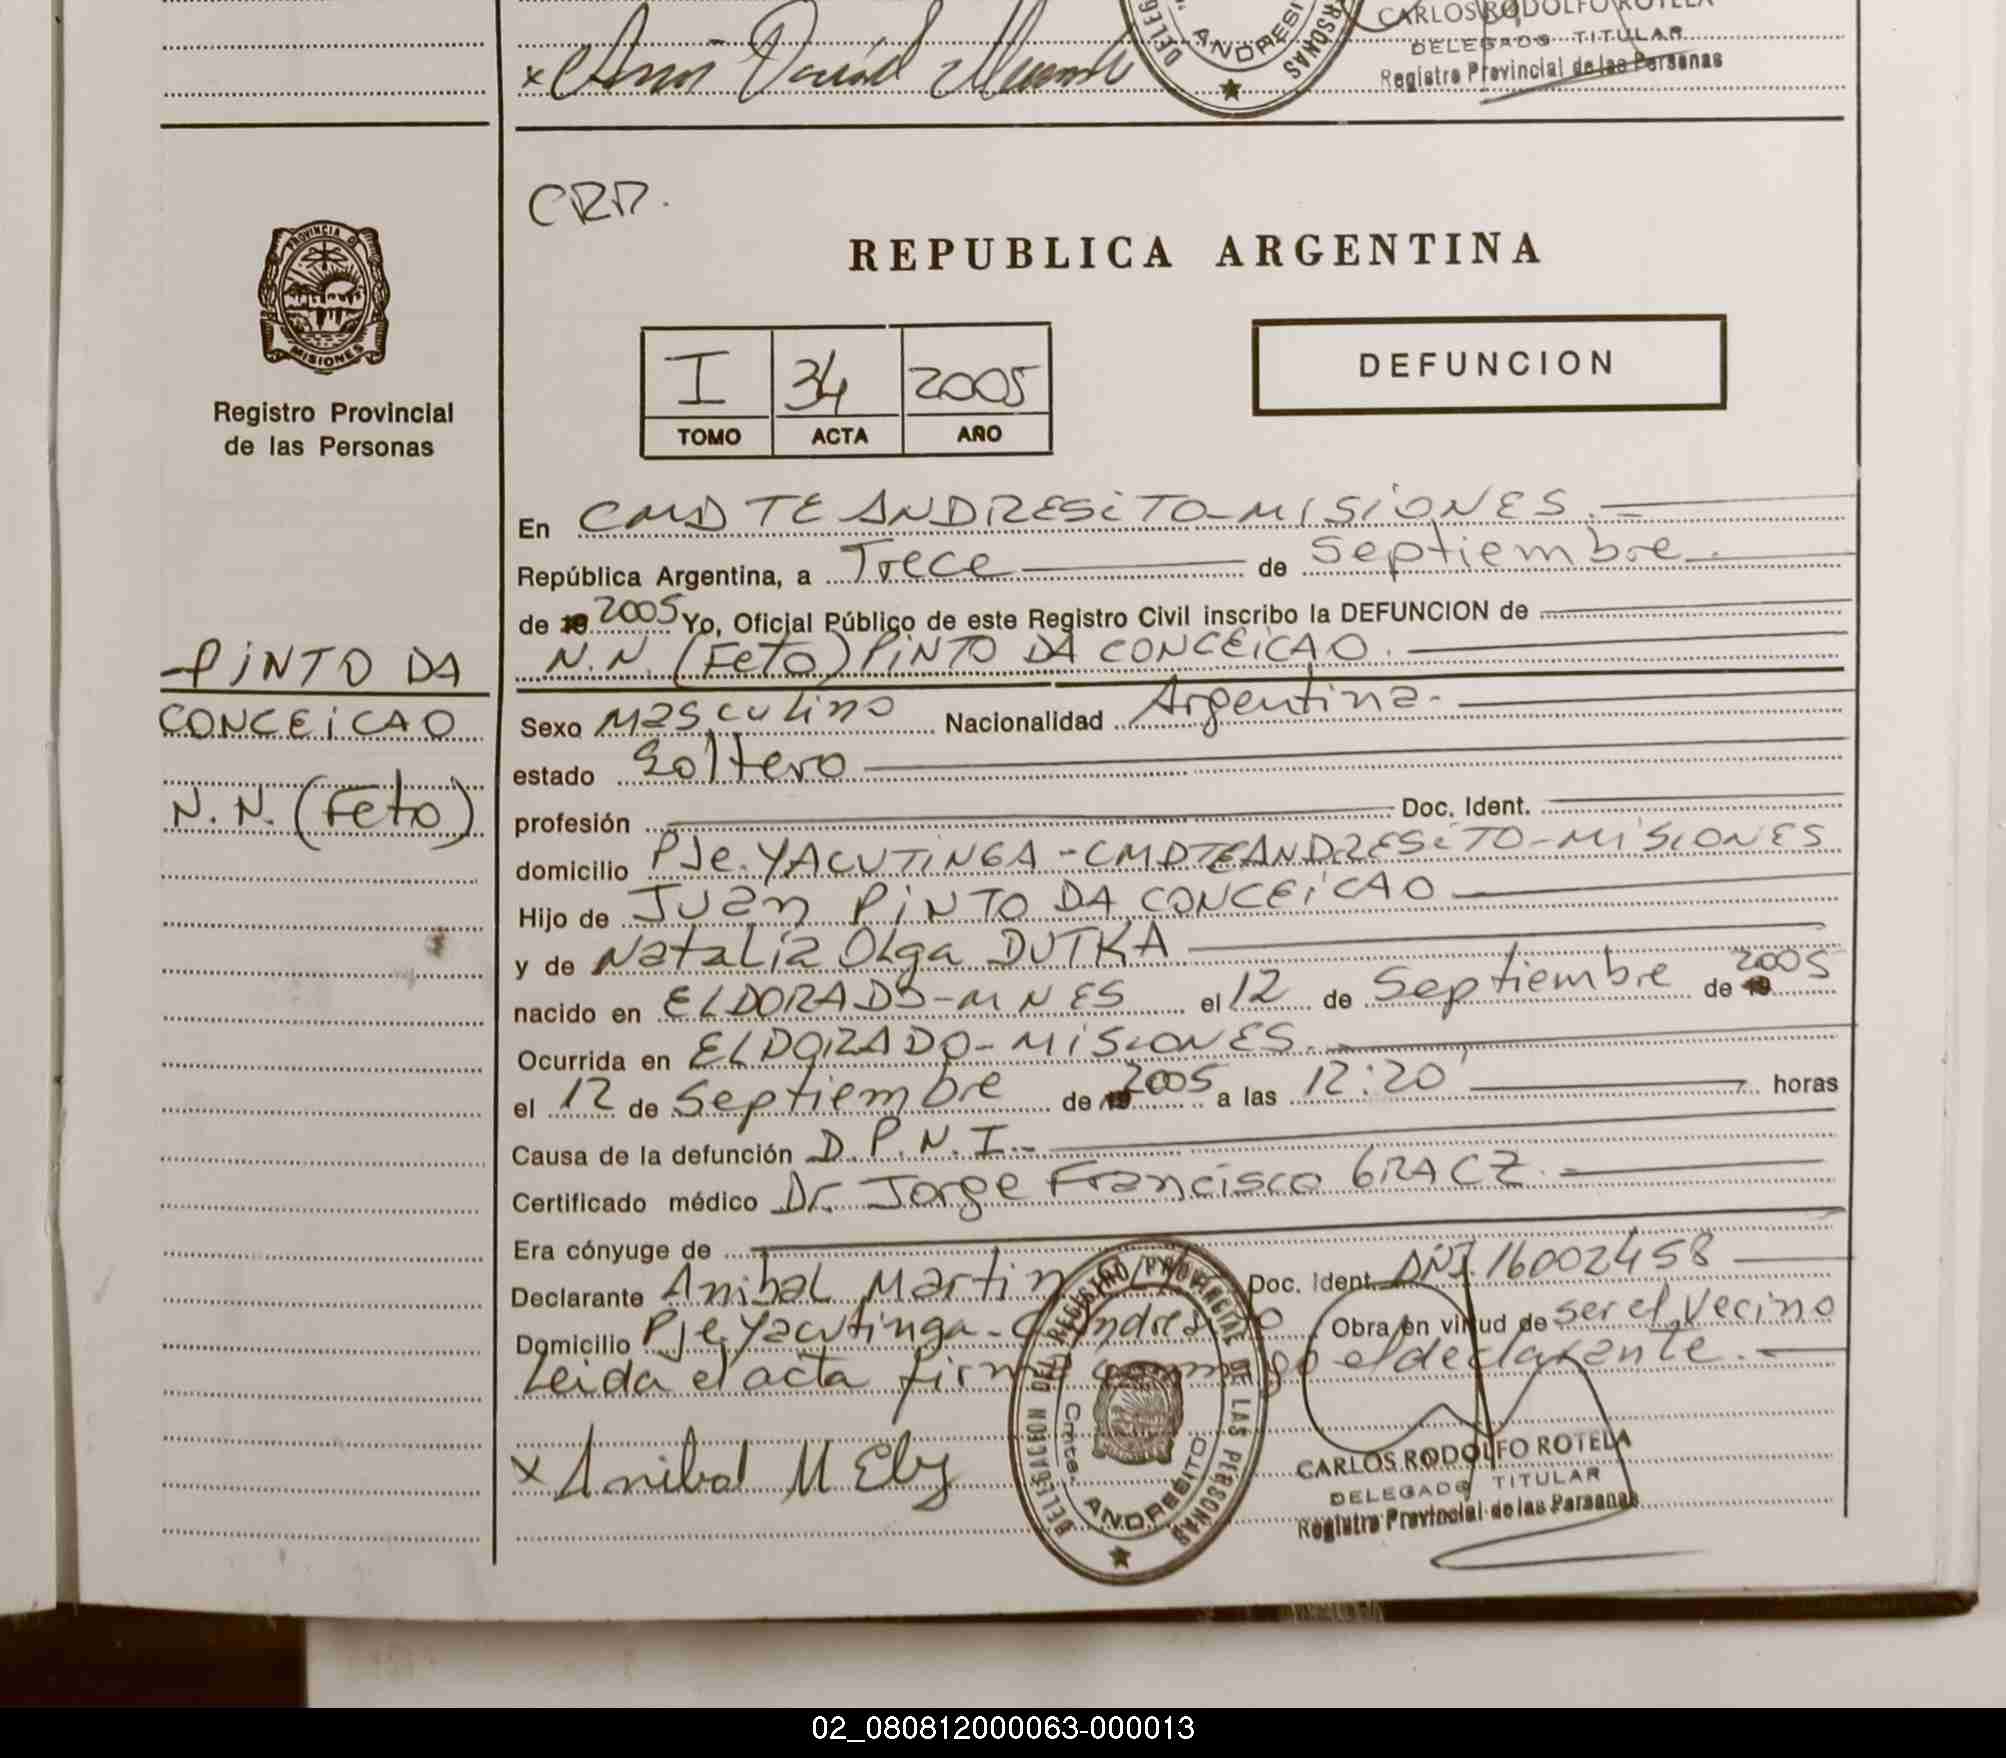 DELEG
ANDRESI
RSONAS
CARLOS RODOLFO ROTELA
DELEGADO TITULAR
Registro Provincial de las Personas
x David
CRR.
PROVINCIA DE
MISIONES
Registro Provincial
de las Personas
REPUBLICA ARGENTINA
I 34 2005
TOMO ACTA AÑO
DEFUNCION
En CMDTE ANDRESITO-MISIONES.
República Argentina, a Trece de Septiembre.
de 19 2005 Yo, Oficial Público de este Registro Civil inscribo la DEFUNCION de
N.N. (Feto) PINTO DA CONCEICAO.
PINTO DA
CONCEICAO
N.N. (Feto)
Sexo Masculino Nacionalidad Argentina.
estado Soltero
profesión Doc. Ident.
domicilio PJe. YACUTINGA-CMDTEANDRESITO-MISIONES
Hijo de Juan PINTO DA CONCEICAO
y de Natalia Olga DUTKA
nacido en ELDORADO-MNES el 12 de Septiembre de 19 2005
Ocurrida en ELDORADO-MISIONES.
el 12 de Septiembre de 19 2005 a las 12:20' horas
Causa de la defunción D.P.N.I.-
Certificado médico Dr. Jorge Francisco GRACZ.
Era cónyuge de
Declarante Anibal Martin Doc. Ident. DNI. 16002458
Domicilio PJe. Yacutinga-C. Andresito Obra en virtud de ser el Vecino
Leida el acta firma conmigo el declarante.
x Anibal M Eby
DELEGACION DEL REGISTRO PROVINCIAL DE LAS PERSONAS
Cmte. ANDRESITO
CARLOS RODOLFO ROTELA
DELEGADO TITULAR
Registro Provincial de las Personas
02_080812000063-000013